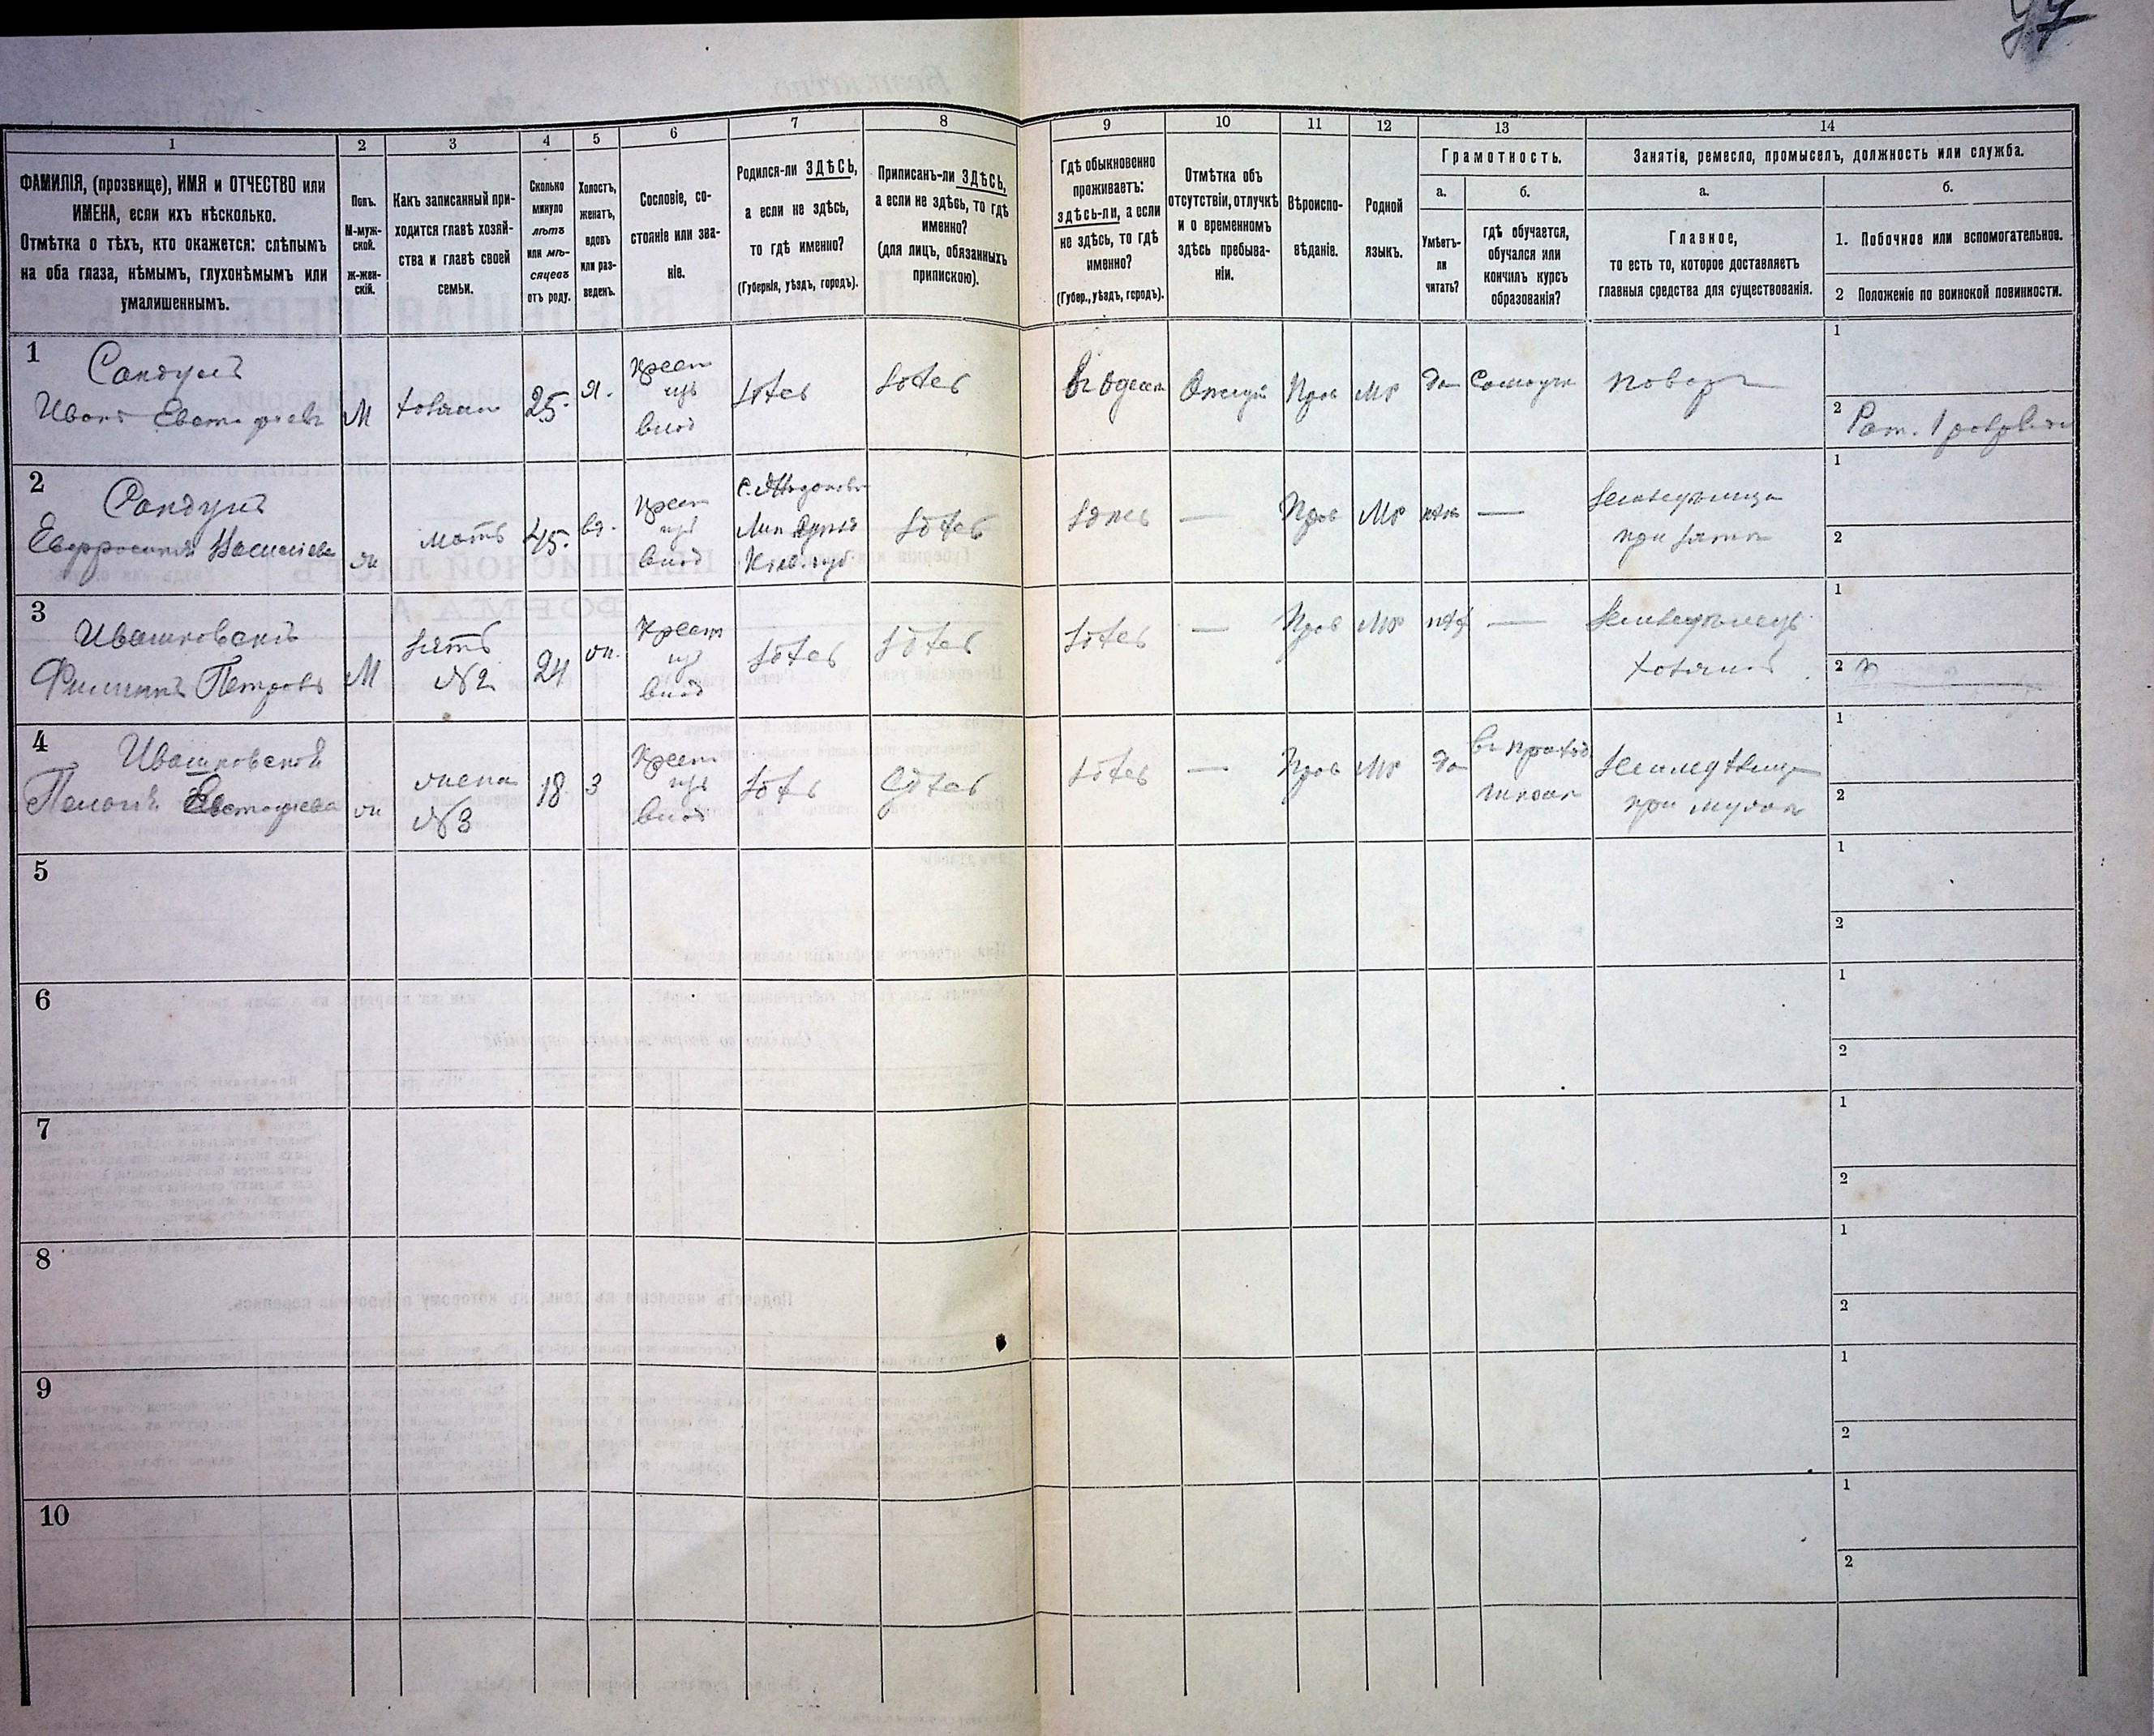 97
1
2
3
4
5
6
7
8
9
10
11
12
13
14
ФАМИЛІЯ, (прозвище), ИМЯ и ОТЧЕСТВО или
ИМЕНА, если ихъ нѣсколько.
Отмѣтка о тѣхъ, кто окажется: слѣпымъ
на оба глаза, нѣмымъ, глухонѣмымъ или
умалишеннымъ.
Полъ.
М-муж-
ской.
ж-жен-
скій.
Какъ записанный при-
ходится главѣ хозяй-
ства и главѣ своей
семьи.
Сколько
минуло
лѣтъ
или мѣ-
сяцевъ
отъ роду.
Холостъ,
женатъ,
вдовъ
или раз-
веденъ.
Сословіе, со-
стояніе или зва-
ніе.
Родился-ли ЗДѢСЬ,
а если не здѣсь,
то гдѣ именно?
(Губернія, уѣздъ, городъ).
Приписанъ-ли ЗДѢСЬ,
а если не здѣсь, то гдѣ
именно?
(для лицъ, обязанныхъ
припискою).
Гдѣ обыкновенно
проживаетъ:
здѣсь-ли, а если
не здѣсь, то гдѣ
именно?
(Губер., уѣздъ, городъ).
Отмѣтка объ
отсутствіи, отлучкѣ
и о временномъ
здѣсь пребыва-
ніи.
Вѣроиспо-
вѣданіе.
Родной
языкъ.
Грамотность.
а.
Умѣетъ-
ли
читать?
б.
гдѣ обучается,
обучался или
кончилъ курсъ
образованія?
Занятіе, ремесло, промыселъ, должность или служба.
а.
Главное,
то есть то, которое доставляетъ
главныя средства для существованія.
б.
1. Побочное или вспомогательное.
2 Положеніе по воинской повинности.
1
Сандулъ
Иванъ Евстафіевъ
М
хозяин
25.
Крест
изъ
влад
здѣсь
здѣсь
въ Одессѣ
Прав
Мр
да
поваръ
1
2
2
Сандулъ
Евфросинія Василіева
ж
мать
45.
вд.
Крест
изъ
влад
Кіев. губ
здѣсь
здѣсь
—
Прав
Мр
нѣтъ
—
Земледѣлица
при зятѣ
1
2
3
Ивашковскій
Филиппъ Петровъ
М
зять
№2
24
ж.
Крест
изъ
влад
здѣсь
здѣсь
здѣсь
—
Прав
Мр
нѣтъ
—
Земледѣлецъ
хозяинъ
1
2
4
Ивашковская
Пелагія Евстафіева
ж
жена
№3
18
з
Крест
изъ
влад
здѣсь
здѣсь
здѣсь
—
Прав
Мр
да
школѣ
Земледѣлица
при мужѣ
1
2
5
1
2
6
1
2
7
1
2
8
1
2
9
1
2
10
1
2